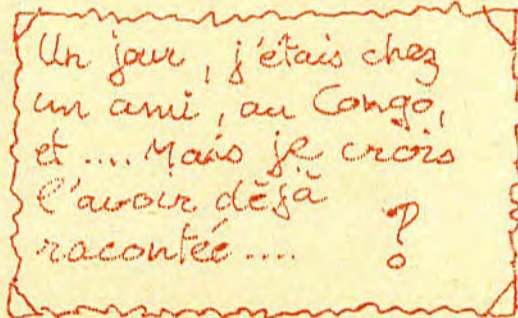 Un jour, j'étais chez
un ami, au Congo,
et .... Mais je crois
l'avoir déjà
racontée .... ?